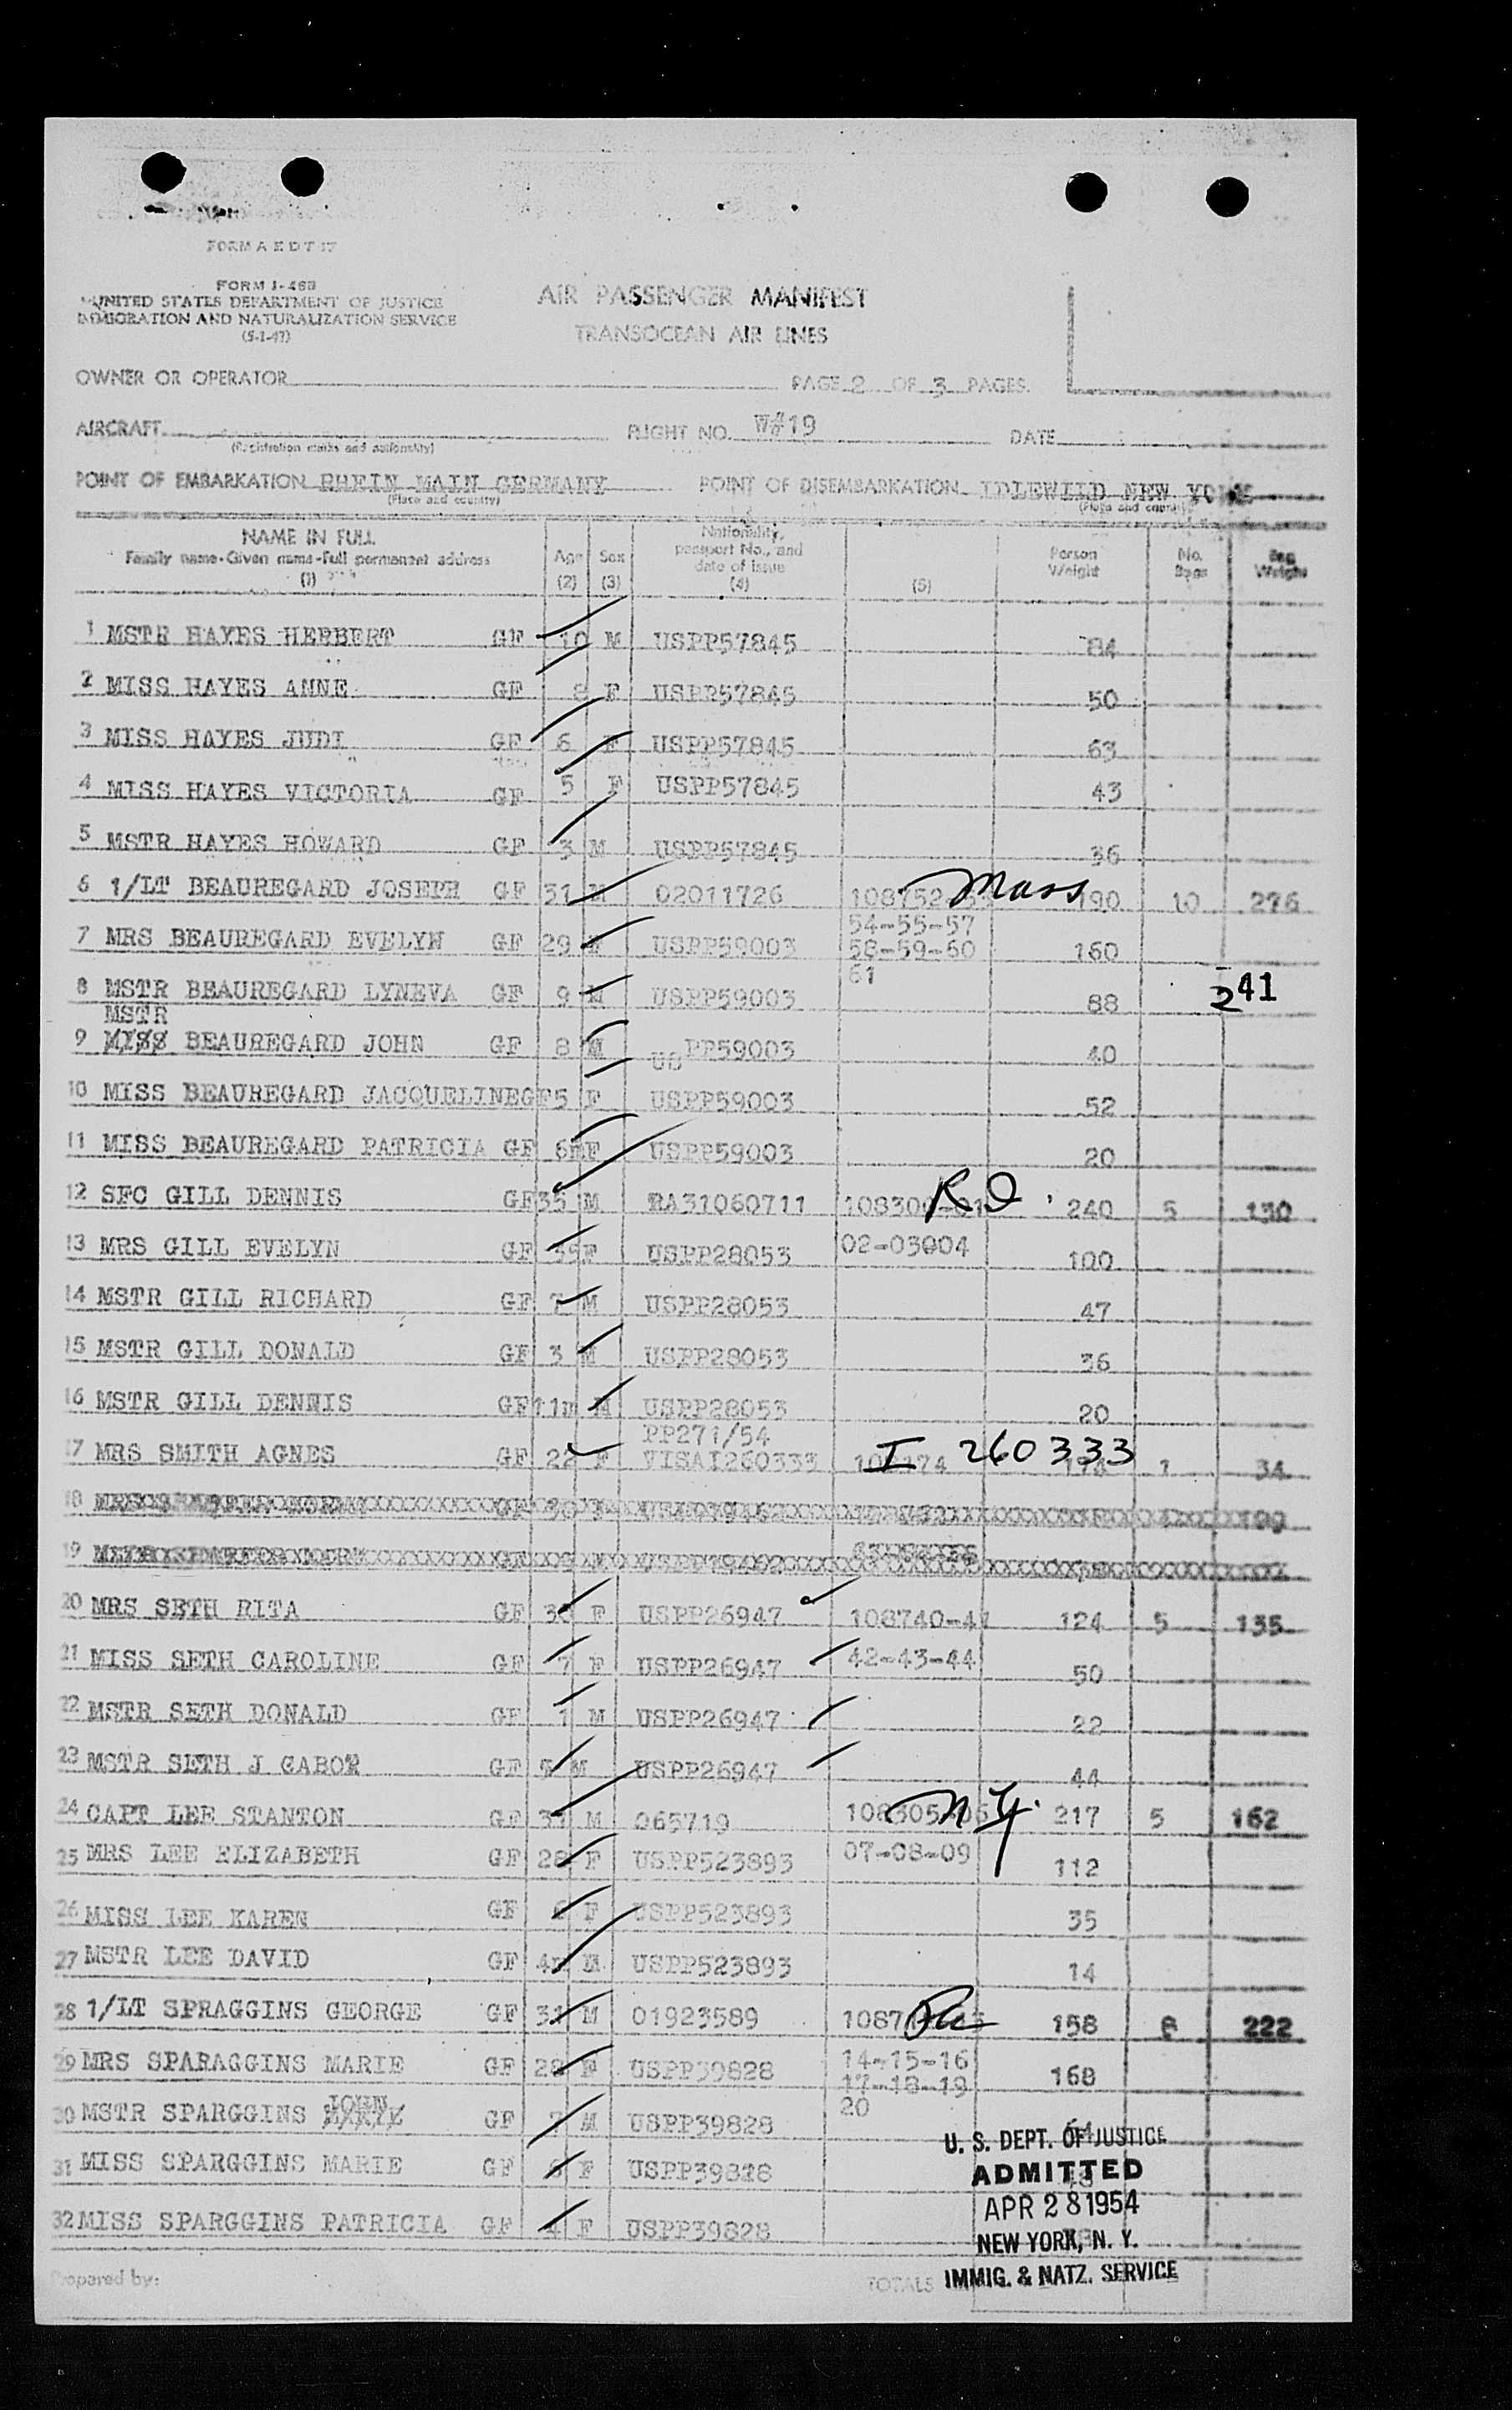 FORM A E D T 17
FORM I-466
UNITED STATES DEPARTMENT OF JUSTICE
IMMIGRATION AND NATURALIZATION SERVICE
(5-1-47)
AIR PASSENGER MANIFEST
TRANSOCEAN AIR LINES
OWNER OR OPERATOR PAGE 2 OF 3 PAGES
AIRCRAFT FLIGHT NO. W#19 DATE
(Registration marks and nationality)
POINT OF EMBARKATION RHEIN MAIN GERMANY POINT OF DISEMBARKATION IDLEWILD NEW YORK
(Place and country) (Place and country)
NAME IN FULL
Family name-Given name-Full permanent address
(1)
Age (2)
Sex (3)
Nationality, passport No., and date of issue (4)
(5)
Person Weight
No. Bags
Bag Weight
1 MSTR HAYES HERBERT GF 10 M USPP57845 84
2 MISS HAYES ANNE GF 8 F USPP57845 50
3 MISS HAYES JUDI GF 6 F USPP57845 63
4 MISS HAYES VICTORIA GF 5 F USPP57845 43
5 MSTR HAYES HOWARD GF 3 M USPP57845 36
6 1/LT BEAUREGARD JOSEPH GF 31 M 02011726 108752 Mass 190 10 276
7 MRS BEAUREGARD EVELYN GF 29 F USPP59003 54-55-57 58-59-60 160
8 MSTR BEAUREGARD LYNEVA GF 9 M USPP59003 61 88 241
MSTR
9 MISS BEAUREGARD JOHN GF 8 M US PP59003 40
10 MISS BEAUREGARD JACQUELINEGF 5 F USPP59003 52
11 MISS BEAUREGARD PATRICIA GF 6m F USPP59003 20
12 SFC GILL DENNIS GF 35 M RA31060711 108300-01 RI. 240 5 130
13 MRS GILL EVELYN GF 35 F USPP28053 02-03004 100
14 MSTR GILL RICHARD GF 7 M USPP28053 47
15 MSTR GILL DONALD GF 3 M USPP28053 36
16 MSTR GILL DENNIS GF 11m M USPP28053 20
PP271/54
17 MRS SMITH AGNES GF 22 F VISAI260333 I 260333 1 34
18
19
20 MRS SETH RITA GF F USPP26947 108740-41 124 5 135
21 MISS SETH CAROLINE GF 7 F USPP26947 42-43-44 50
22 MSTR SETH DONALD GF 1 M USPP26947 22
23 MSTR SETH J CABOT GF M USPP26947 44
24 CAPT LEE STANTON GF M 065719 108305-06 N.Y. 217 5 162
25 MRS LEE ELIZABETH GF 28 F USPP523893 07-08-09 112
26 MISS LEE KAREN GF F USPP523893 35
27 MSTR LEE DAVID GF 4m M USPP523893 14
28 1/LT SPRAGGINS GEORGE GF 31 M 01923589 Pa 158 8 222
29 MRS SPARAGGINS MARIE GF 28 F USPP39828 14-15-16 17-18-19 168
JOHN
30 MSTR SPARGGINS GF 7 M USPP39828 20
31 MISS SPARGGINS MARIE GF F USPP39828
32 MISS SPARGGINS PATRICIA GF F USPP39828
Prepared by: TOTALS
U. S. DEPT. OF JUSTICE
ADMITTED
APR 28 1954
NEW YORK, N. Y.
IMMIG. & NATZ. SERVICE